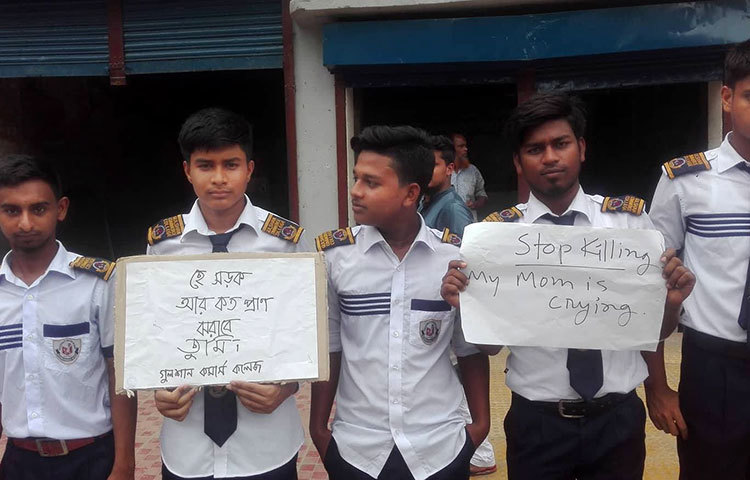 হে সড়ক
আর কত প্রাণ
ঝরাবে
তুমি
গুলশান কমার্স কলেজ
Stop Killing
My Mom is
crying.